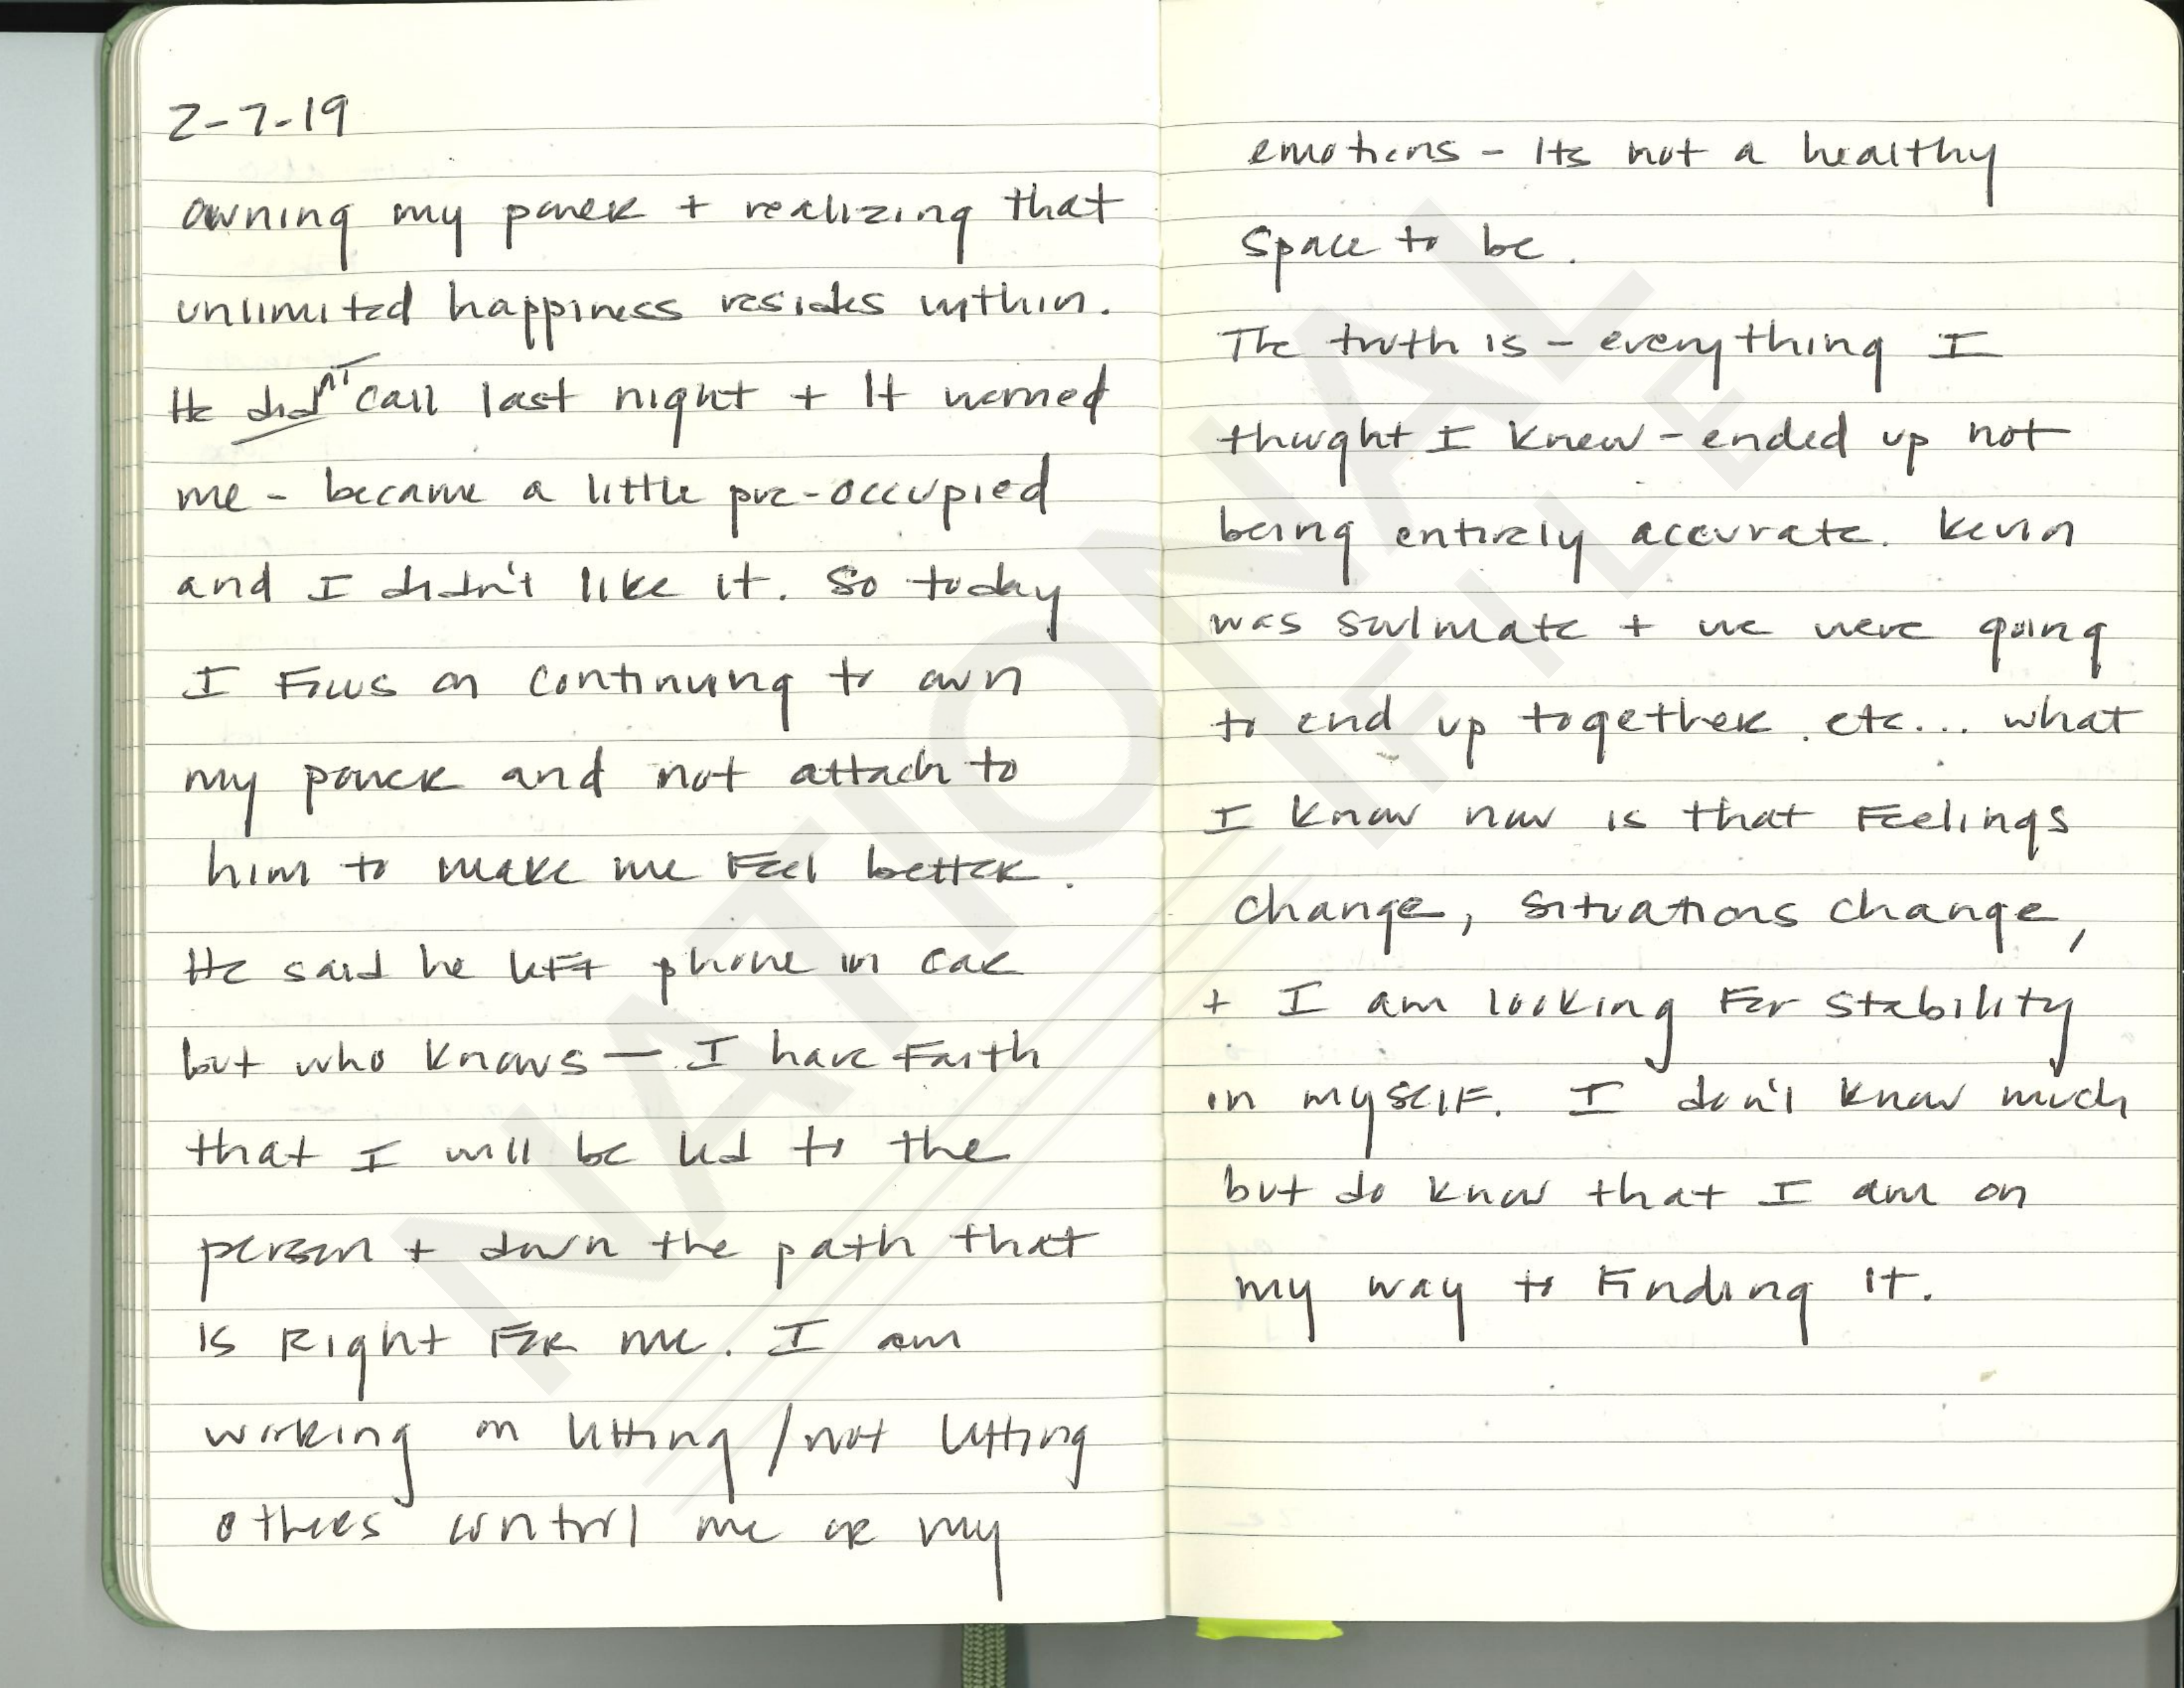 2-7-19
owning my power + realizing that
unlimited happiness resides within.
He didn't call last night + It worried
me - became a little pre-occupied
and I didn't like it. So today
I Focus on continuing to own
my power and not attach to
him to make me Feel better.
He said he left phone in car
but who knows — I have Faith
that I will be led to the
person + down the path that
is Right For me. I am
working on letting / not letting
others control me or my
emotions - Its not a healthy
space to be.
The truth is - everything I
thought I knew - ended up not
being entirely accurate. Kevin
was soulmate + we were going
to end up together. etc... what
I know now is that Feelings
change, situations change,
+ I am looking For stability
in myself. I don't know much
but do know that I am on
my way to Finding it.
NATIONAL
FILE